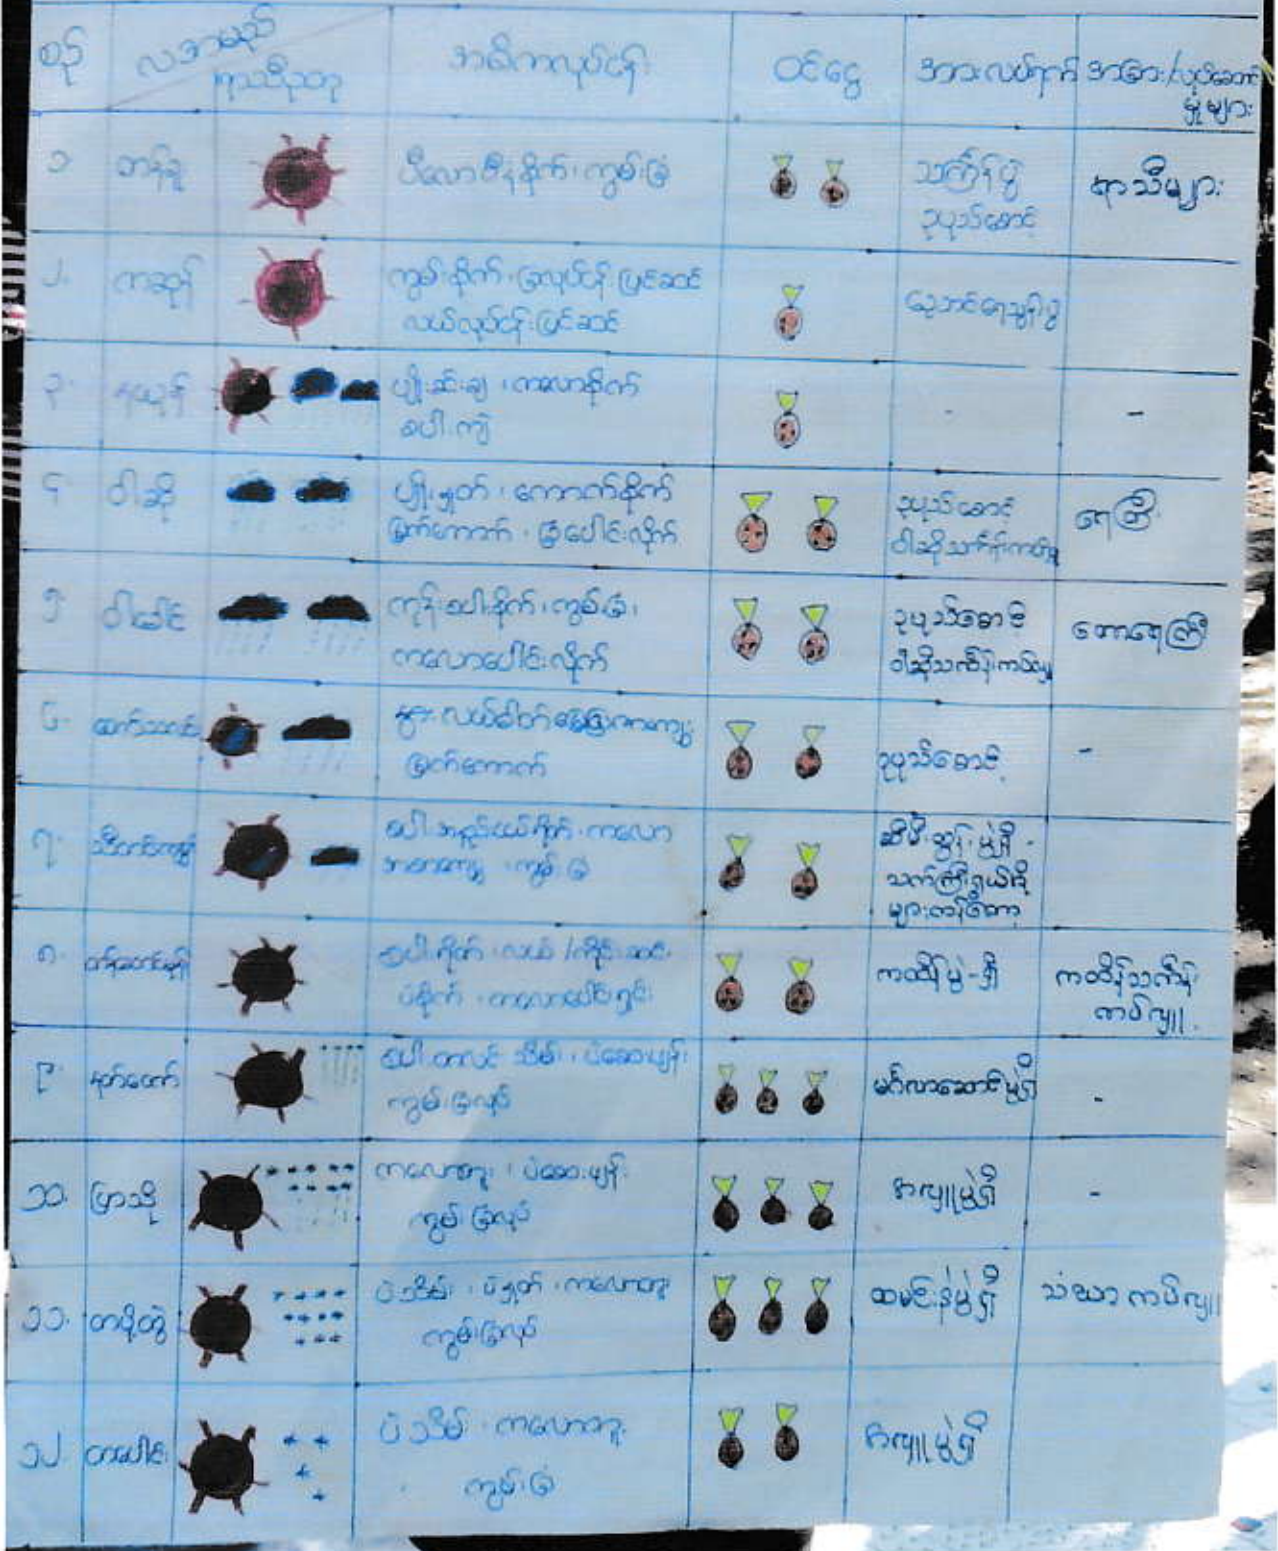 စဉ်
လအမည်
ရာသီဥတု
အဓိကလုပ်ငန်း
ဝင်ငွေ
အားလပ်ရက်
အခြား/လုပ်ဆောင်
မှုများ
၁.
တန်ခူး
ပီလောပီနံစိုက်၊ ကွမ်းခြံ
သင်္ကြန်ပွဲ
ဥပုသ်စောင့်
ရာသီများ
၂.
ကဆုန်
ကွမ်းစိုက်၊ ခြံလုပ်ငန်းပြင်ဆင်
လယ်လုပ်ငန်းပြင်ဆင်
ညောင်ရေသွန်းပွဲ
၃.
နယုန်
ပျိုးဆင်းချ၊ ကလောစိုက်
စပါးကျဲ
-
-
၄.
ဝါဆို
ပျိုးနှုတ်၊ ကောက်စိုက်
မြက်ကောက်၊ ခြံပေါင်းလိုက်
ဥပုသ်စောင့်
ဝါဆိုသင်္ကန်းကပ်လှူ
ရေကြီး
၅.
ဝါခေါင်
ကုန်းစပါးစိုက်၊ ကွမ်းခြံ၊
ကလောပေါင်းလိုက်
ဥပုသ်စောင့်
ဝါဆိုသင်္ကန်းကပ်လှူ
တောရေကြီး
၆.
တော်သလင်း
မြက်ကောက်
ဥပုသ်စောင့်
-
၇.
သီတင်းကျွတ်
ကွမ်းခြံ
ဆီမီးထွန်းပွဲရှိ
သက်ကြီးရွယ်အို
များကန်တော့
၈.
တန်ဆောင်မုန်း
စပါးရိတ်၊ လယ်/ကိုင်းဆင်း
ပဲစိုက်၊ ကလောပေါင်းရှင်း
ကထိန်ပွဲ-ရှိ
ကထိန်သင်္ကန်း
ကပ်လှူ
၉.
နတ်တော်
စပါးတလင်းသိမ်း၊ ပဲဆေးဖျန်း
ကွမ်းခြံလုပ်
မင်္ဂလာဆောင်ပွဲရှိ
-
၁၀.
ပြာသို
ကလောတူး၊ ပဲဆေးဖျန်း
ကွမ်းခြံလုပ်
အလှူပွဲရှိ
-
၁၁.
တပို့တွဲ
ပဲသိမ်း၊ ပဲနှုတ်၊ ကလောတူး
ကွမ်းခြံလုပ်
ထမင်းနဲပွဲရှိ
သံဃာကပ်လှူ
၁၂
တပေါင်း
ပဲသိမ်း၊ ကလောတူး
ကွမ်းခြံ
အလှူပွဲရှိ